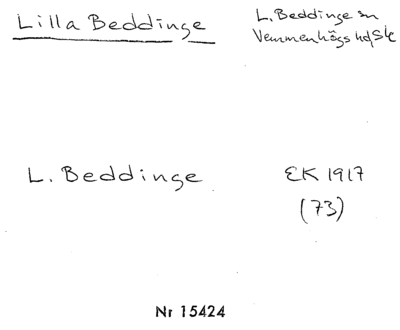 Lilla Beddinge
L. Beddinge sn
Vemmenhögs hd, Sk
L. Beddinge
EK 1917
(73)
Nr 15424